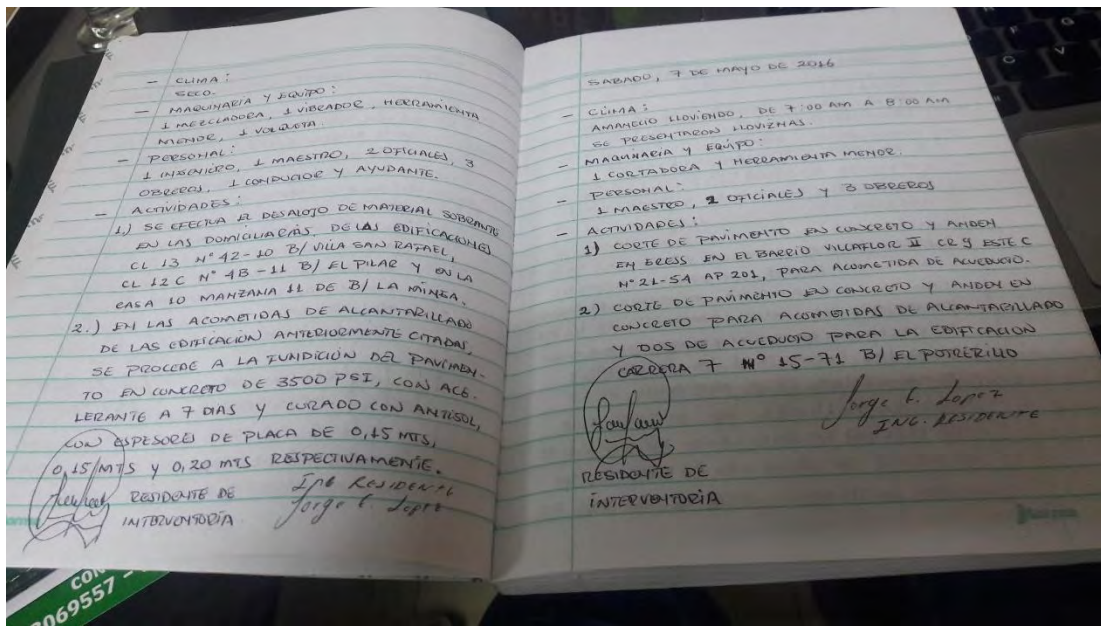 - CLIMA:
SECO.
- MAQUINARIA Y EQUIPO:
1 MEZCLADORA, 1 VIBRADOR, HERRAMIENTA
MENOR, 1 VOLQUETA.
- PERSONAL:
1 INGENIERO, 1 MAESTRO, 2 OFICIALES, 3
OBREROS, 1 CONDUCTOR Y AYUDANTE.
- ACTIVIDADES:
1.) SE EFECTUA EL DESALOJO DE MATERIAL SOBRANTE
EN LAS DOMICILIARIAS, DE LAS EDIFICACIONES
CL 13 N° 42-10 B/ VILLA SAN RAFAEL,
CL 12 C N° 4B-11 B/ EL PILAR Y EN LA
CASA 10 MANZANA 11 DE B/ LA MINGA.
2.) EN LAS ACOMETIDAS DE ALCANTARILLADO
DE LAS EDIFICACION ANTERIORMENTE CITADAS,
SE PROCEDE A LA FUNDICIÓN DEL PAVIMEN-
TO EN CONCRETO DE 3500 PSI, CON ACE-
LERANTE A 7 DIAS Y CURADO CON ANTISOL,
CON ESPESORES DE PLACA DE 0,15 MTS,
0,15 MTS Y 0,20 MTS RESPECTIVAMENTE.
RESIDENTE DE
INTERVENTORÍA
ING RESIDENTE
Jorge E. Lopez
CON
3069557 -
SABADO, 7 DE MAYO DE 2016
- CLIMA:
AMANECIO LLOVIENDO, DE 7:00 AM A 8:00 AM
SE PRESENTARON LLOVIZNAS.
- MAQUINARIA Y EQUIPO:
1 CORTADORA Y HERRAMIENTA MENOR.
- PERSONAL:
1 MAESTRO, 2 OFICIALES Y 3 OBREROS
- ACTIVIDADES:
1) CORTE DE PAVIMENTO EN CONCRETO Y ANDEN
EN EL BARRIO VILLAFLOR II CR 9 ESTE C
N° 21-54 AP 201, PARA ACOMETIDA DE ACUEDUCTO.
2) CORTE DE PAVIMENTO EN CONCRETO Y ANDEN EN
CONCRETO PARA ACOMETIDAS DE ALCANTARILLADO
Y DOS DE ACUEDUCTO PARA LA EDIFICACION
CARRERA 7 N° 15-71 B/ EL POTRERILLO
Jorge E. Lopez
ING. RESIDENTE
RESIDENTE DE
INTERVENTORÍA